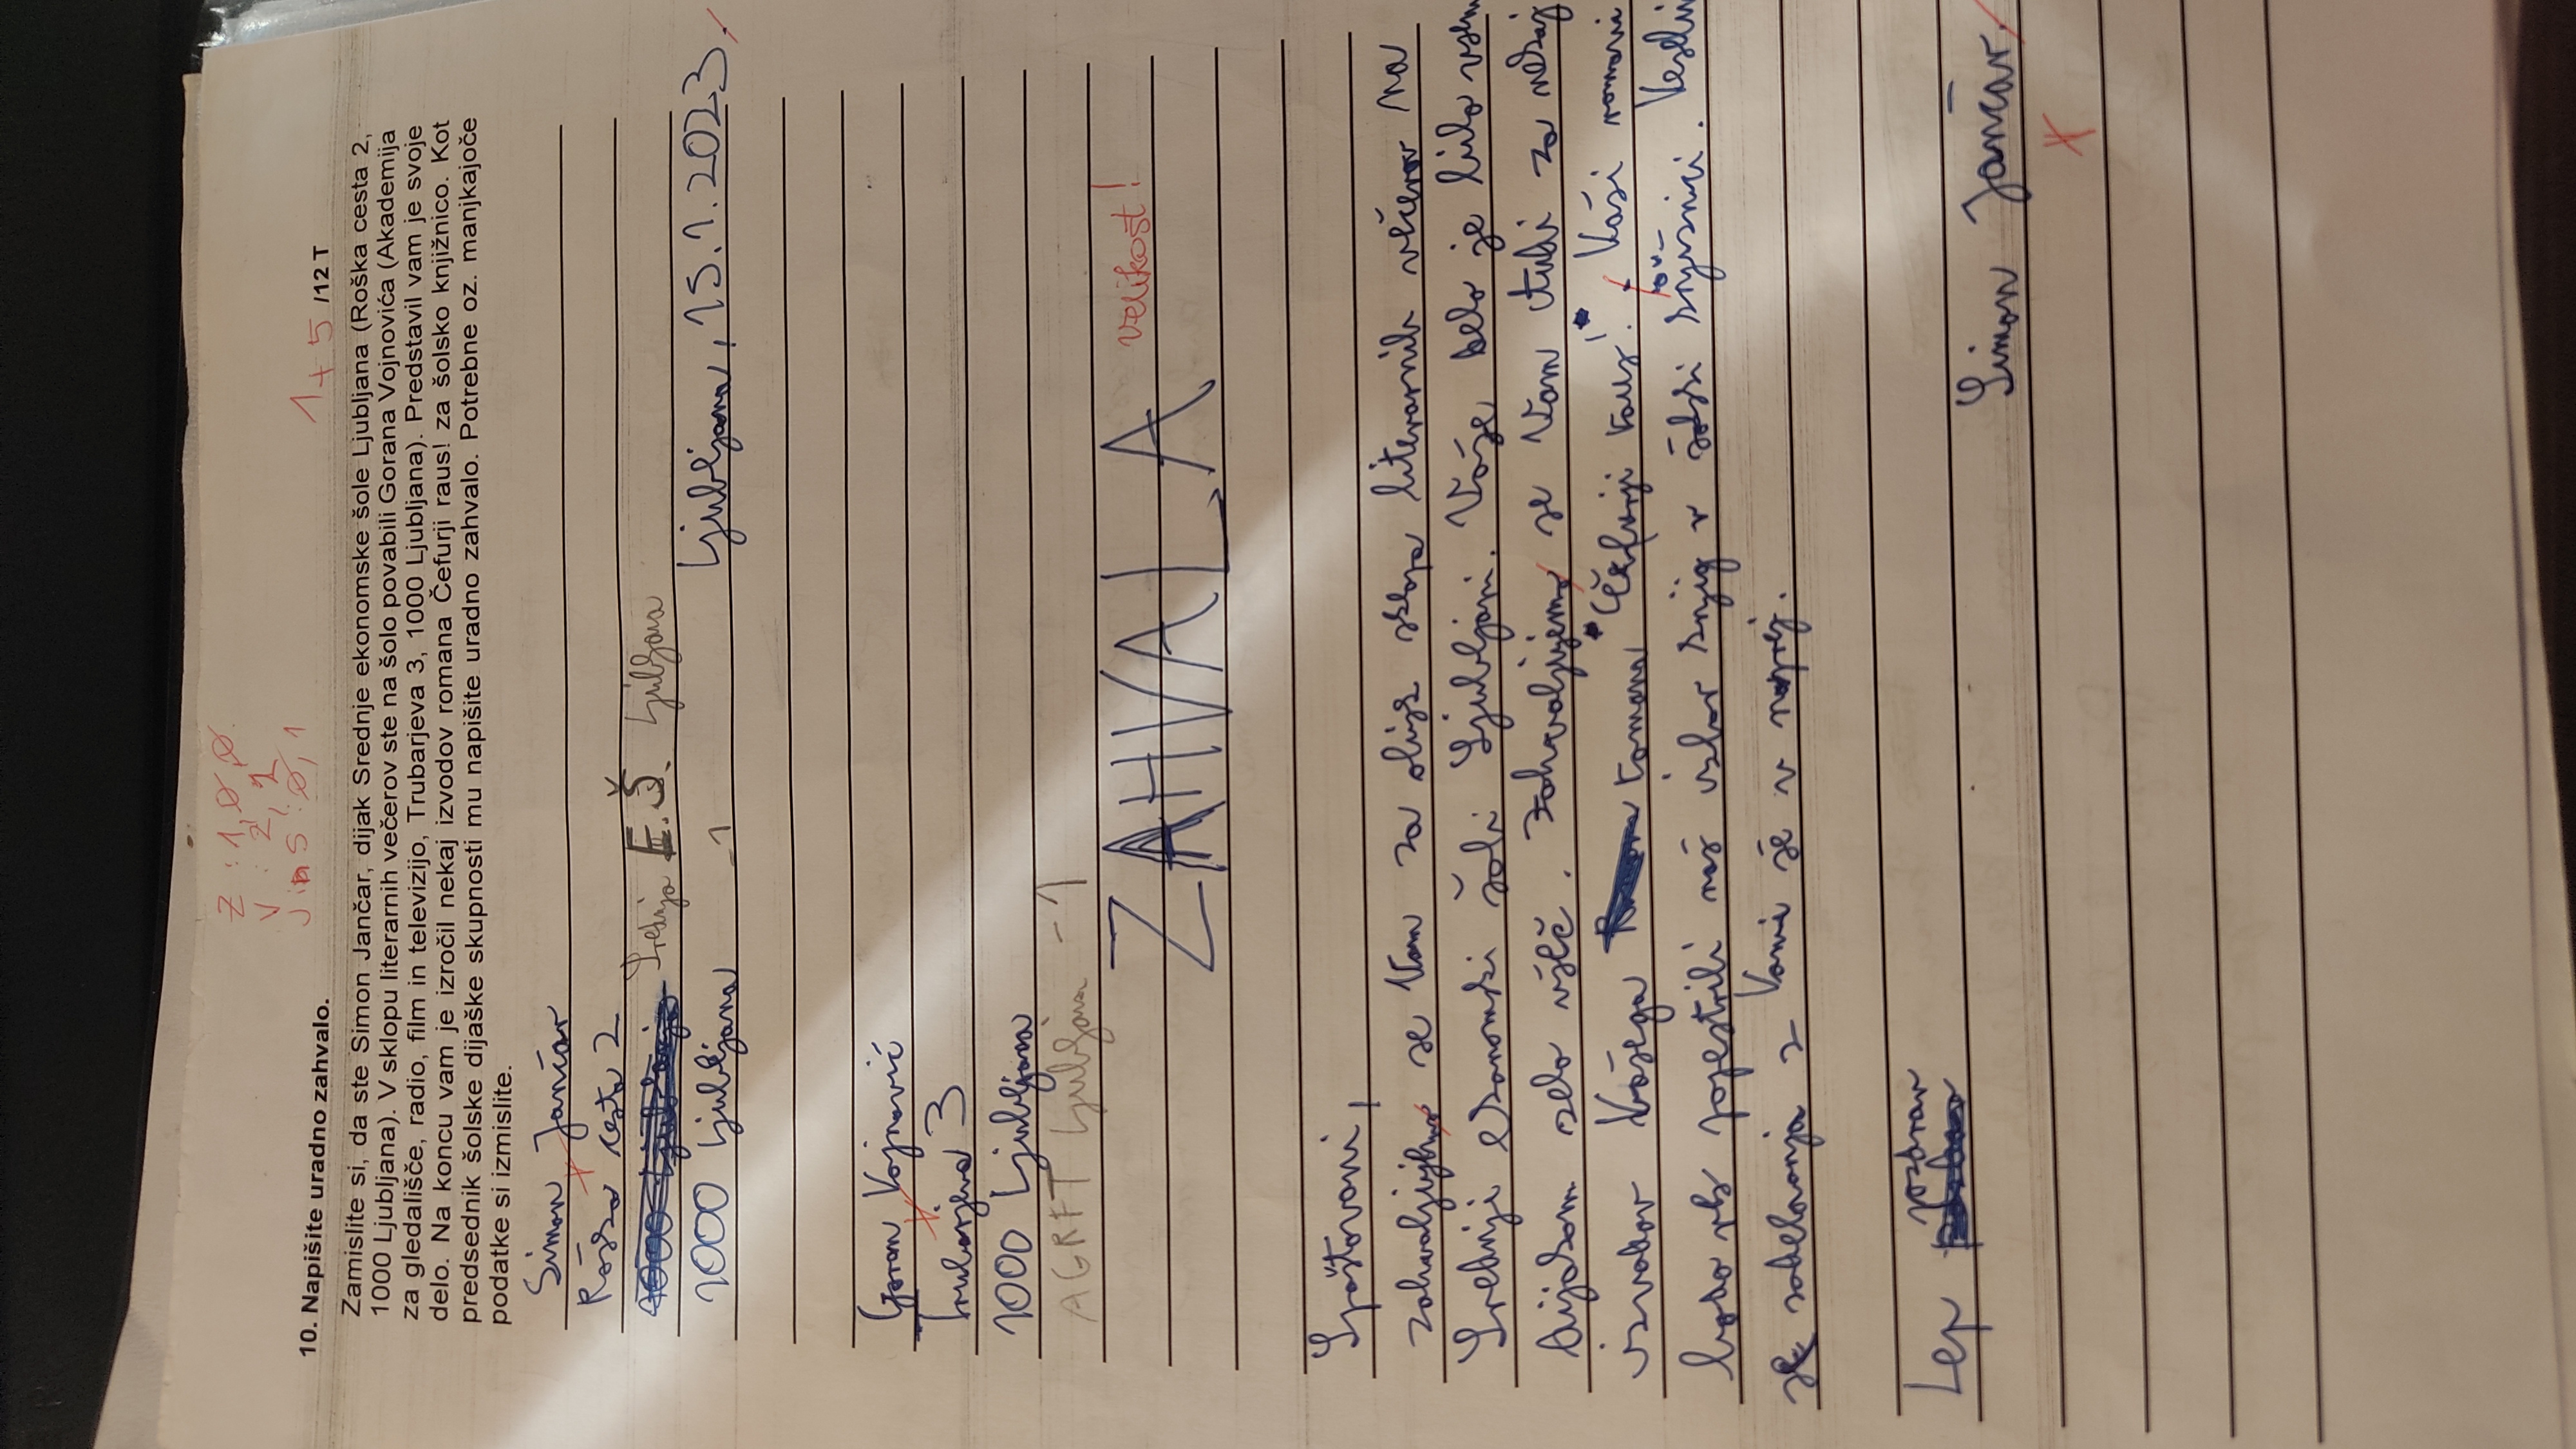 Z : 1, 0, 0
V : 2, 1
J in S : 0, 1
10. Napišite uradno zahvalo. 1 + 5 /12 T
Zamislite si, da ste Simon Jančar, dijak Srednje ekonomske šole Ljubljana (Roška cesta 2,
1000 Ljubljana). V sklopu literarnih večerov ste na šolo povabili Gorana Vojnovića (Akademija
za gledališče, radio, film in televizijo, Trubarjeva 3, 1000 Ljubljana). Predstavil vam je svoje
delo. Na koncu vam je izročil nekaj izvodov romana Čefurji raus! za šolsko knjižnico. Kot
predsednik šolske dijaške skupnosti mu napišite uradno zahvalo. Potrebne oz. manjkajoče
podatke si izmislite.
Simon Jančar
Roška cesta 2
1000 Ljubljana Srednja E.Š. Ljubljana
1000 Ljubljana -1 Ljubljana, 15.1.2023
Goran Vojnović
Trubarjeva 3
1000 Ljubljana
AGRFT Ljubljana -1
ZAHVALA velikost!
Spoštovani,
zahvaljujemo se Vam za obisk sklopa literarnih večerov na
Srednji ekonomski šoli Ljubljani. Vaše delo je bilo vsem
dijakom zelo všeč. Zahvaljujemo se Vam tudi za nekaj
izvodov Vašega romana "Čefurji raus!". Vaši romani
bodo popestrili naš izbor knjig v šolski knjižnici. Veselimo
se sodelovanja z Vami še v naprej.
Lep pozdrav
Simon Jančar